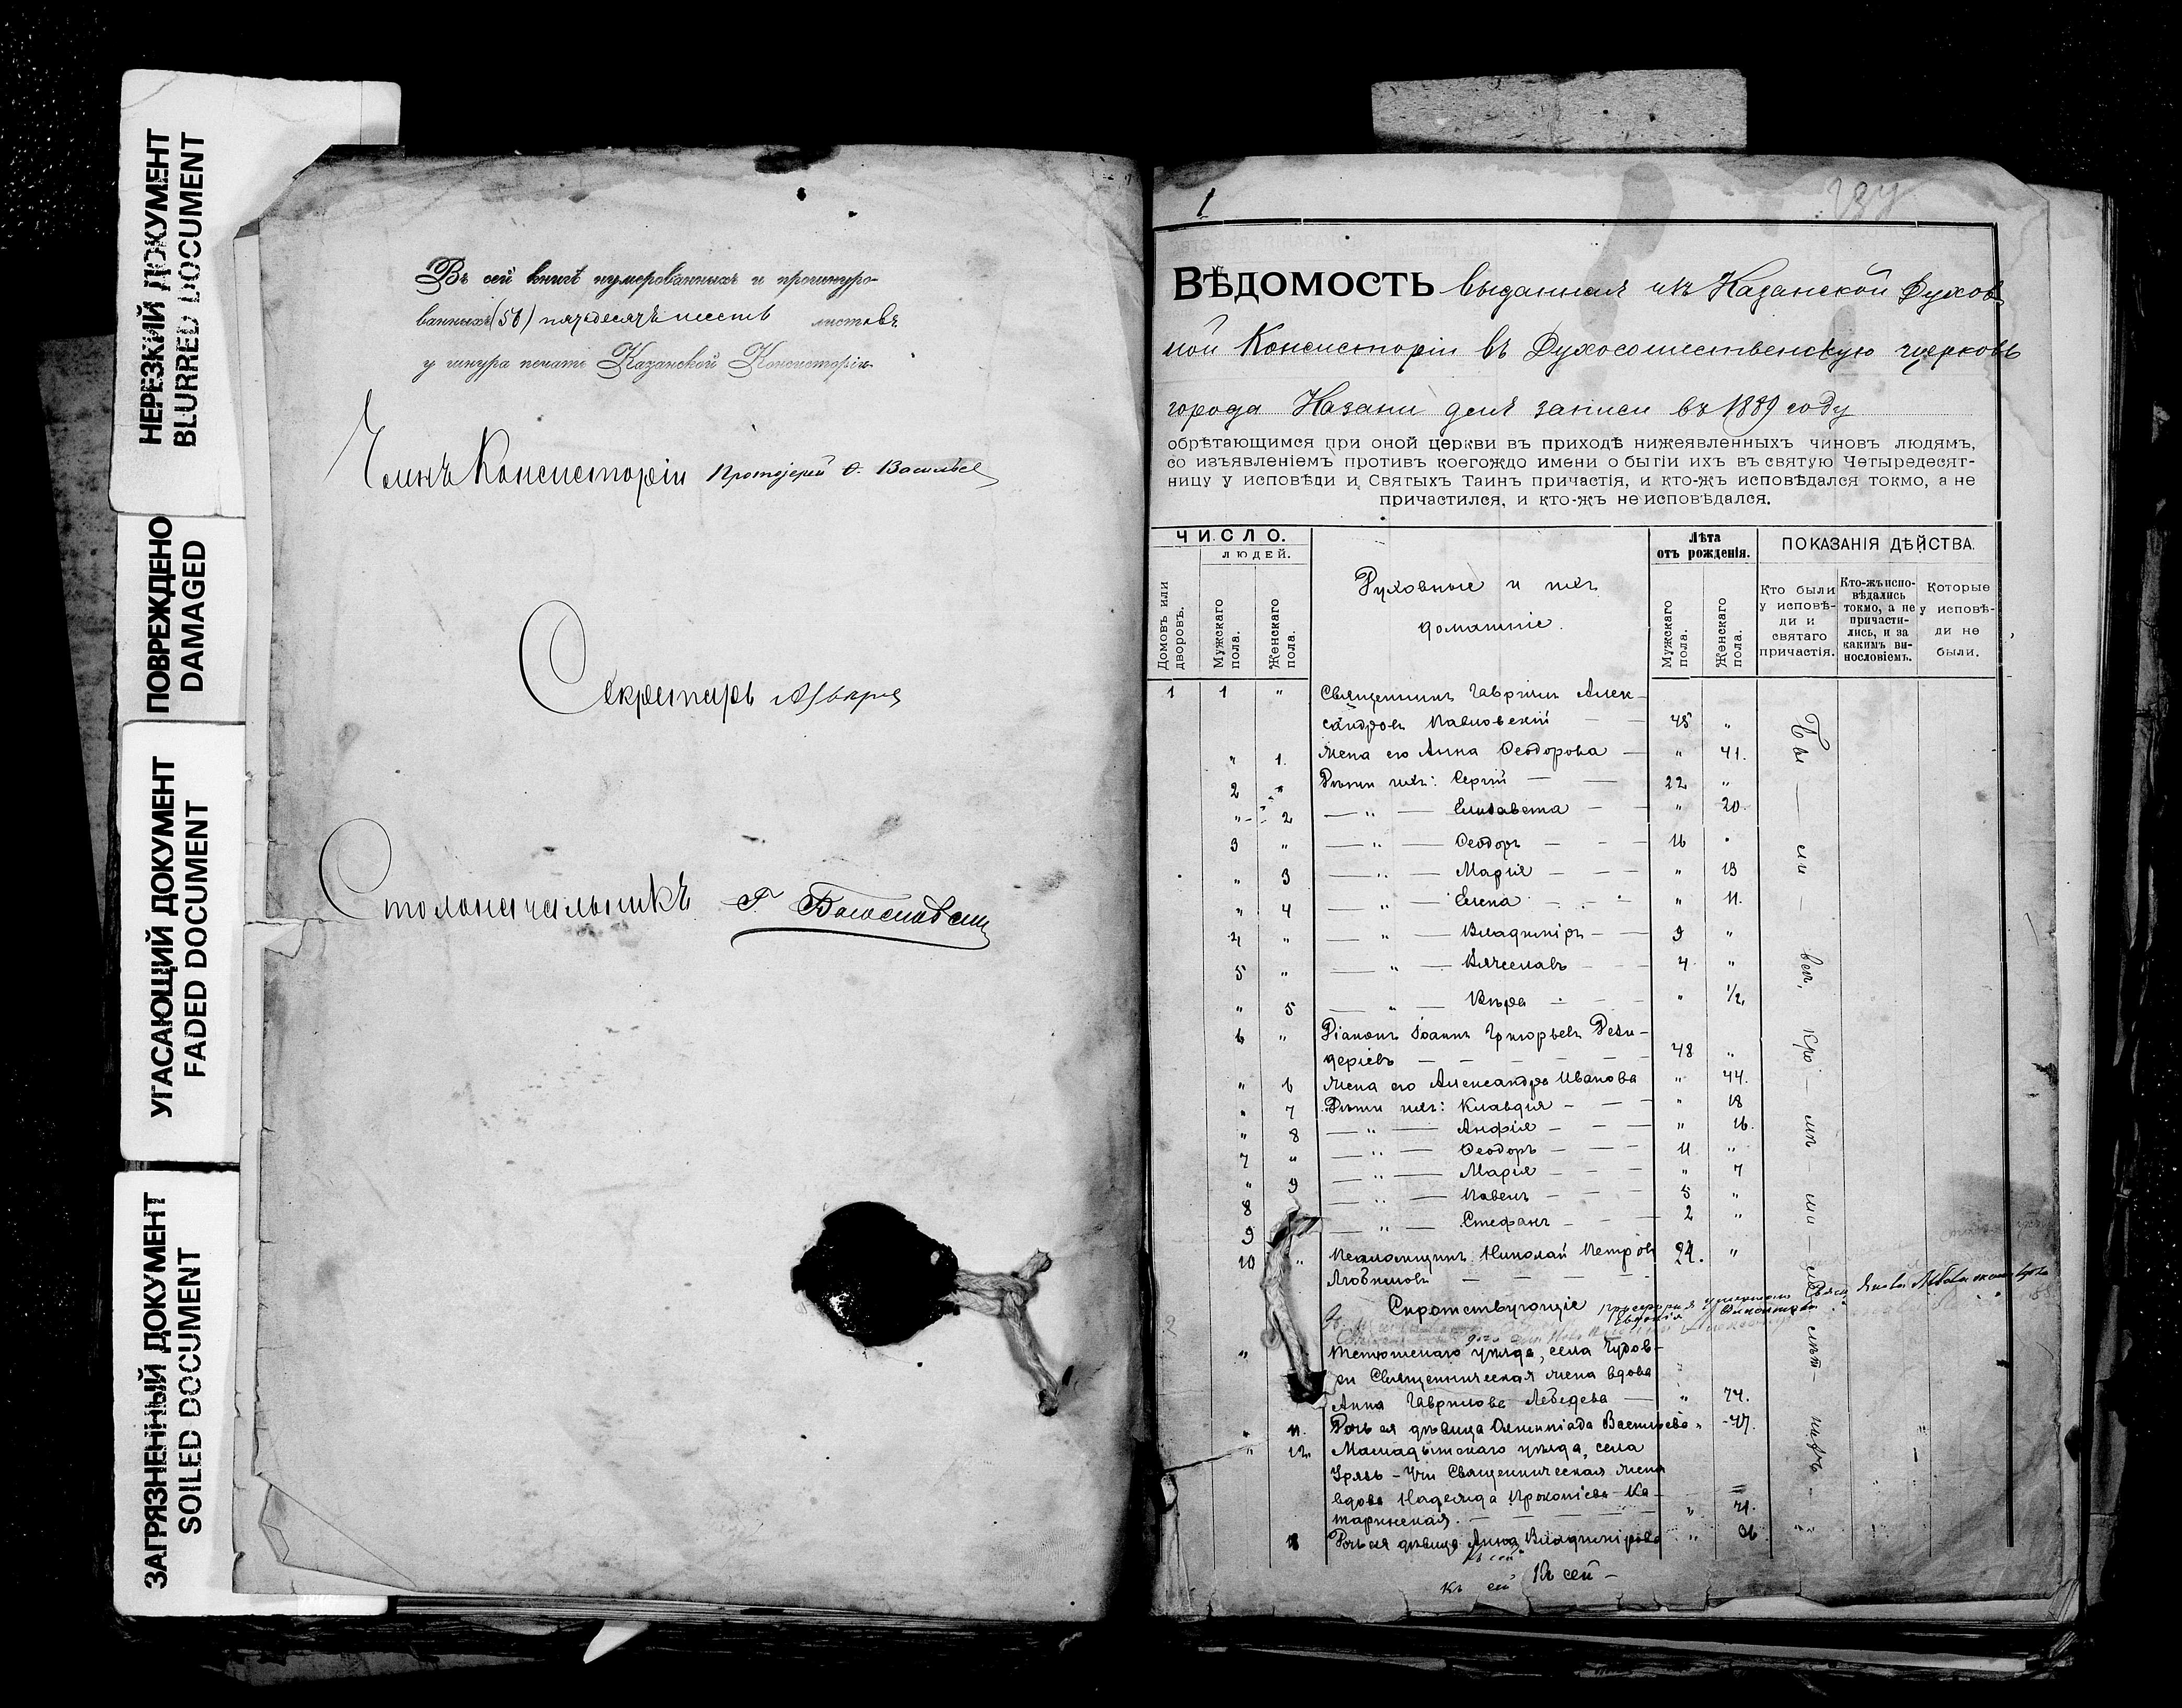 НЕРЕЗКИЙ ДОКУМЕНТ
BLURRED DOCUMENT
ПОВРЕЖДЕНО
DAMAGED
УГАСАЮЩИЙ ДОКУМЕНТ
FADED DOCUMENT
ЗАГРЯЗНЕННЫЙ ДОКУМЕНТ
SOILED DOCUMENT
Въ сей книгѣ нумерованныхъ и прошнуро-
ванныхъ (56) пятьдесятъ шесть листовъ
у шнура печать Казанской Консисторіи
Членъ Консисторіи Протоіерей Ѳ. Васильев
Секретарь
Столоначальникъ Г Богословскій
1
ВѢДОМОСТЬ выданная изъ Казанской Духов
ной Консисторіи въ Духосошественскую церковь
города Казани для записи въ 1889 году
обрѣтающимся при оной церкви въ приходѣ нижеявленныхъ чиновъ людямъ,
со изъявленіемъ противъ коегождо имени о бытіи ихъ въ святую Четыредесят-
ницу у исповѣди и Святыхъ Таинъ причастія, и кто-жъ исповѣдался токмо, а не
причастился, и кто-жъ не исповѣдался.
ЧИСЛО.
ЛЮДЕЙ.
Домовъ или дворовъ.
Мужскаго пола.
Женскаго пола.
Духовные и ихъ
домашніе.
Лѣта отъ рожденія.
Мужскаго пола.
Женскаго пола.
ПОКАЗАНІЯ ДѢЙСТВА.
Кто были у исповѣ-ди и святаго причастія.
Кто-жъ испо-вѣдались токмо, а не причасти-лись, и за какимъ ви-нословіемъ.
Которые у исповѣ-ди не были.
1 1 " Священникъ Гавріилъ Алек-
сандровъ Павловскій 45 "
" 1. Жена его Анна Ѳеодорова " 41.
2 " Дѣти ихъ: Сергій 22 "
" 2 " Елизавета " 20.
3 " " Ѳеодоръ 16 "
" 3 " Марія " 13
" 4 " Елена " 11.
4 " " Владиміръ 9 "
5 " " Вячеславъ 4 "
" 5 " Вѣра " 1/2
6 " Діаконъ Іоаннъ Григорьевъ Дези-
деріевъ 48 "
" 6 Жена его Александра Иванова " 44.
" 7 Дѣти ихъ: Клавдія " 18
" 8 " Анфія " 16.
7 " " Ѳеодоръ 11 "
" 9 " Марія " 7
8 " Павелъ 5 "
9 " Стефанъ 2 "
10 " Псаломщикъ Николай Петровъ 24. "
Любимовъ
Сиротствующіе
" Тетюшскаго уѣзда, села Чудов-
ки Священническая жена вдова
Анна Гаврилова Лебедева " 74.
" 11. Дочь ея дѣвица Олимпіада Васильева " 47.
" 12. Мамадышскаго уѣзда, села
Урясь-Учи Священническая жена
вдова Надежда Прокопіева Ка-
таринская. " 71.
Дочь ея дѣвица Анна Владимірова " 36.
Къ сей
къ сей Къ сей -